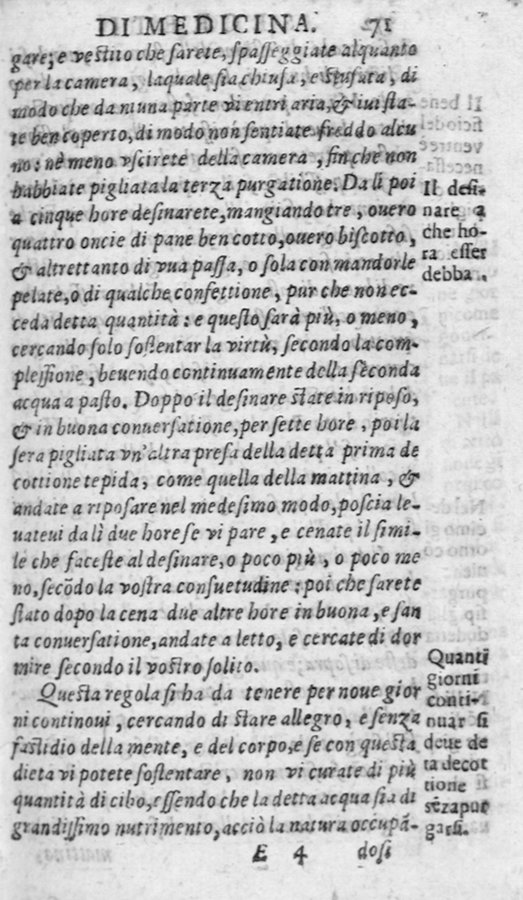 DI MEDICINA. 71
gare; e vestito che sarete, spasseggiate alquanto
per la camera, laquale sia chiusa, e stufata, di
modo che da niuna parte vi entri aria, & iui sta-
te ben coperto, di modo non sentiate freddo alcu
no: nè meno vscirete della camera, fin che non
habbiate pigliata la terza purgatione. Da lì poi
a cinque hore desinarete, mangiando tre, ouero
quattro oncie di pane ben cotto, ouero biscotto,
& altrettanto di vua passa, o sola con mandorle
pelate, o di qualche confettione, pur che non ec-
ceda detta quantità: e questo sarà più, o meno,
cercando solo sostentar la virtù, secondo la com-
plessione, beuendo continuamente della seconda
acqua a pasto. Doppo il desinare state in riposo,
& in buona conuersatione, per sette hore, poi la
sera pigliata vn'altra presa della detta prima de
cottione tepida, come quella della mattina, &
andate a riposare nel medesimo modo, poscia le-
uateui da lì due hore se vi pare, e cenate il simi-
le che faceste al desinare, o poco più, o poco me
no, secōdo la vostra consuetudine: poi che sarete
stato dopo la cena due altre hore in buona, e san
ta conuersatione, andate a letto, e cercate di dor
mire secondo il vostro solito.
Questa regola si ha da tenere per noue gior
ni continoui, cercando di stare allegro, e senza
fastidio della mente, e del corpo, e se con questa
dieta vi potete sostentare, non vi curate di più
quantità di cibo, essendo che la detta acqua sia di
grandissimo nutrimento, acciò la natura occupā-
E 4 dosi
Il desi-
nare a
che ho-
ra esser
debba.
Quanti
giorni
conti-
nuar si
deue de
ta decot
tione
sēza pur
garsi.